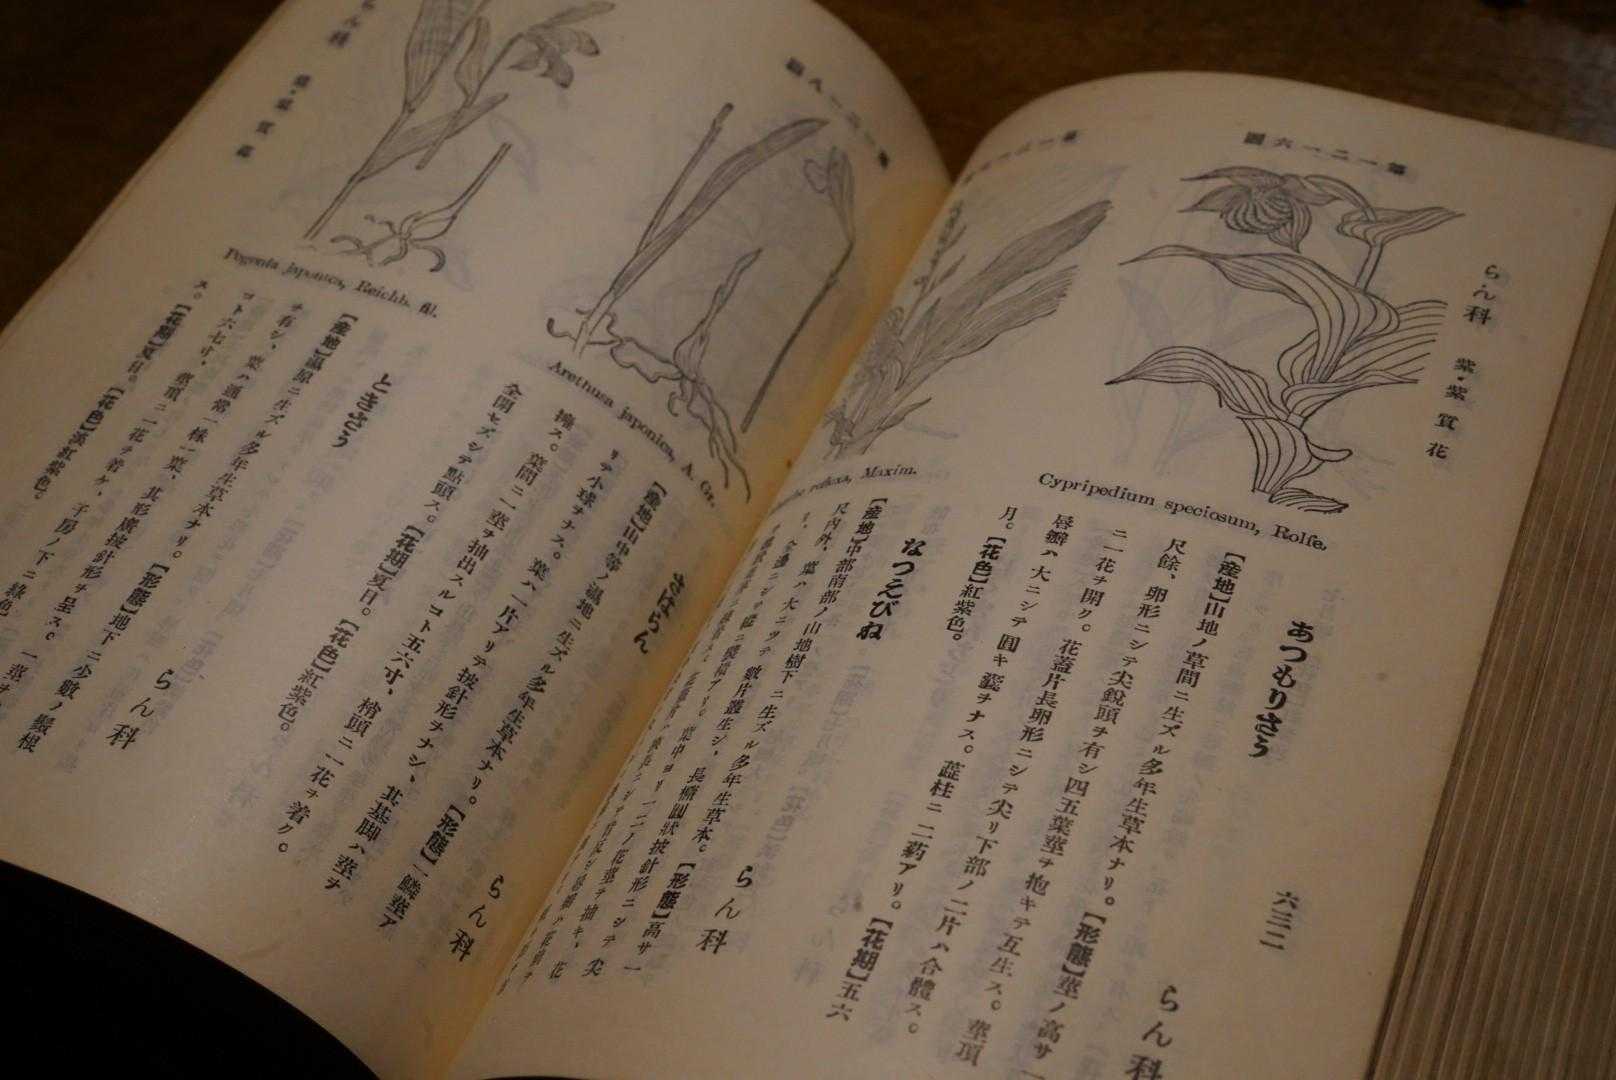 らん科　紫・紫質花
六三二
第一二一六圖
Cypripedium speciosum, Rolfe.
あつもりさう
らん科
【産地】山地ノ草間ニ生ズル多年生草本ナリ。【形態】莖ノ高サ一
尺餘、卵形ニシテ尖鋭頭ヲ有シ四五葉莖ヲ抱キテ互生ス。莖頂
ニ一花ヲ開ク。花蓋片長卵形ニシテ尖リ下部ノ二片ハ合體ス。
唇瓣ハ大ニシテ圓キ嚢ヲナス。蕋柱ニ二葯アリ。【花期】五六
月。【花色】紅紫色。
reflexa, Maxim.
なつえびね
らん科
【産地】中部南部ノ山地樹下ニ生ズル多年生草本。【形態】高サ一
尺内外、葉ハ大ニシテ數片叢生シ、長橢圓狀披針形ニシテ尖
第一二一八圖
Arethusa japonica, A. Gr.
さはらん
らん科
【産地】山中等ノ濕地ニ生ズル多年生草本ナリ。【形態】鱗莖ア
リテ小球ヲナス。葉ハ一片アリテ披針形ヲナシ、其基脚ハ莖ヲ
擁ス。葉間ニ一莖ヲ抽出スルコト五六寸、梢頭ニ一花ヲ着ク。
全開セズシテ點頭ス。【花期】夏日。【花色】紅紫色。
Pogonia japonica, Reichb. fil.
ときさう
らん科
【産地】濕原ニ生ズル多年生草本ナリ。【形態】地下ニ少數ノ鬚根
ヲ有シ、葉ハ通常一株一葉、其形廣披針形ヲ呈ス。一莖ヲ
コト六七寸、莖頂ニ一花ヲ着ケ、子房ノ下ニ綠色
ス。【花期】夏日。【花色】淡紅紫色。